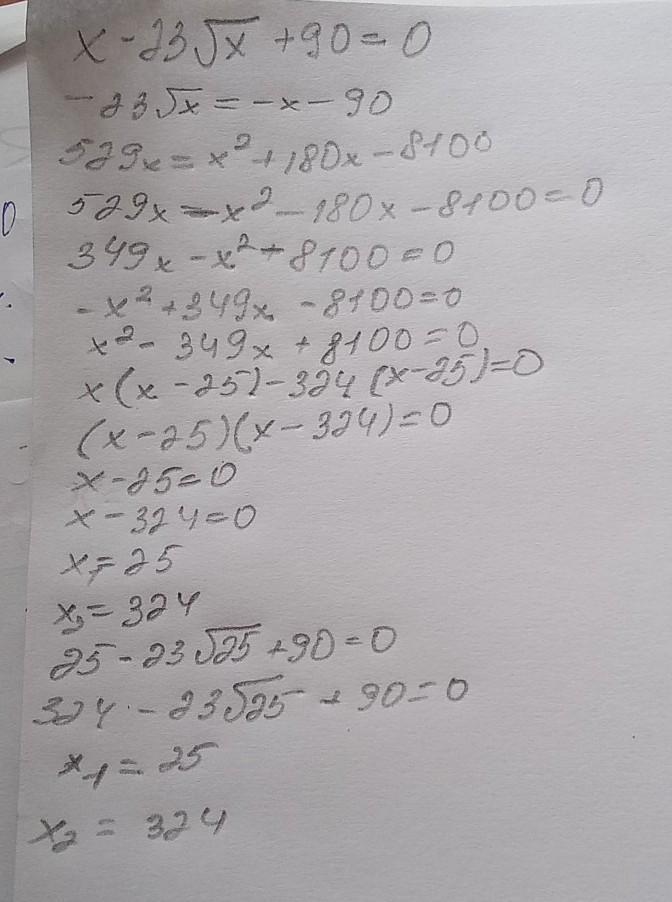 x - 23√x + 90 = 0
- 23√x = - x - 90
529x = x² + 180x - 8100
529x - x² - 180x - 8100 = 0
349x - x² - 8100 = 0
- x² + 349x - 8100 = 0
x² - 349x + 8100 = 0
x (x - 25) - 324 (x - 25) = 0
(x - 25)(x - 324) = 0
x - 25 = 0
x - 324 = 0
x₁ = 25
x₂ = 324
25 - 23√25 + 90 = 0
324 - 23√25 + 90 = 0
x₁ = 25
x₂ = 324